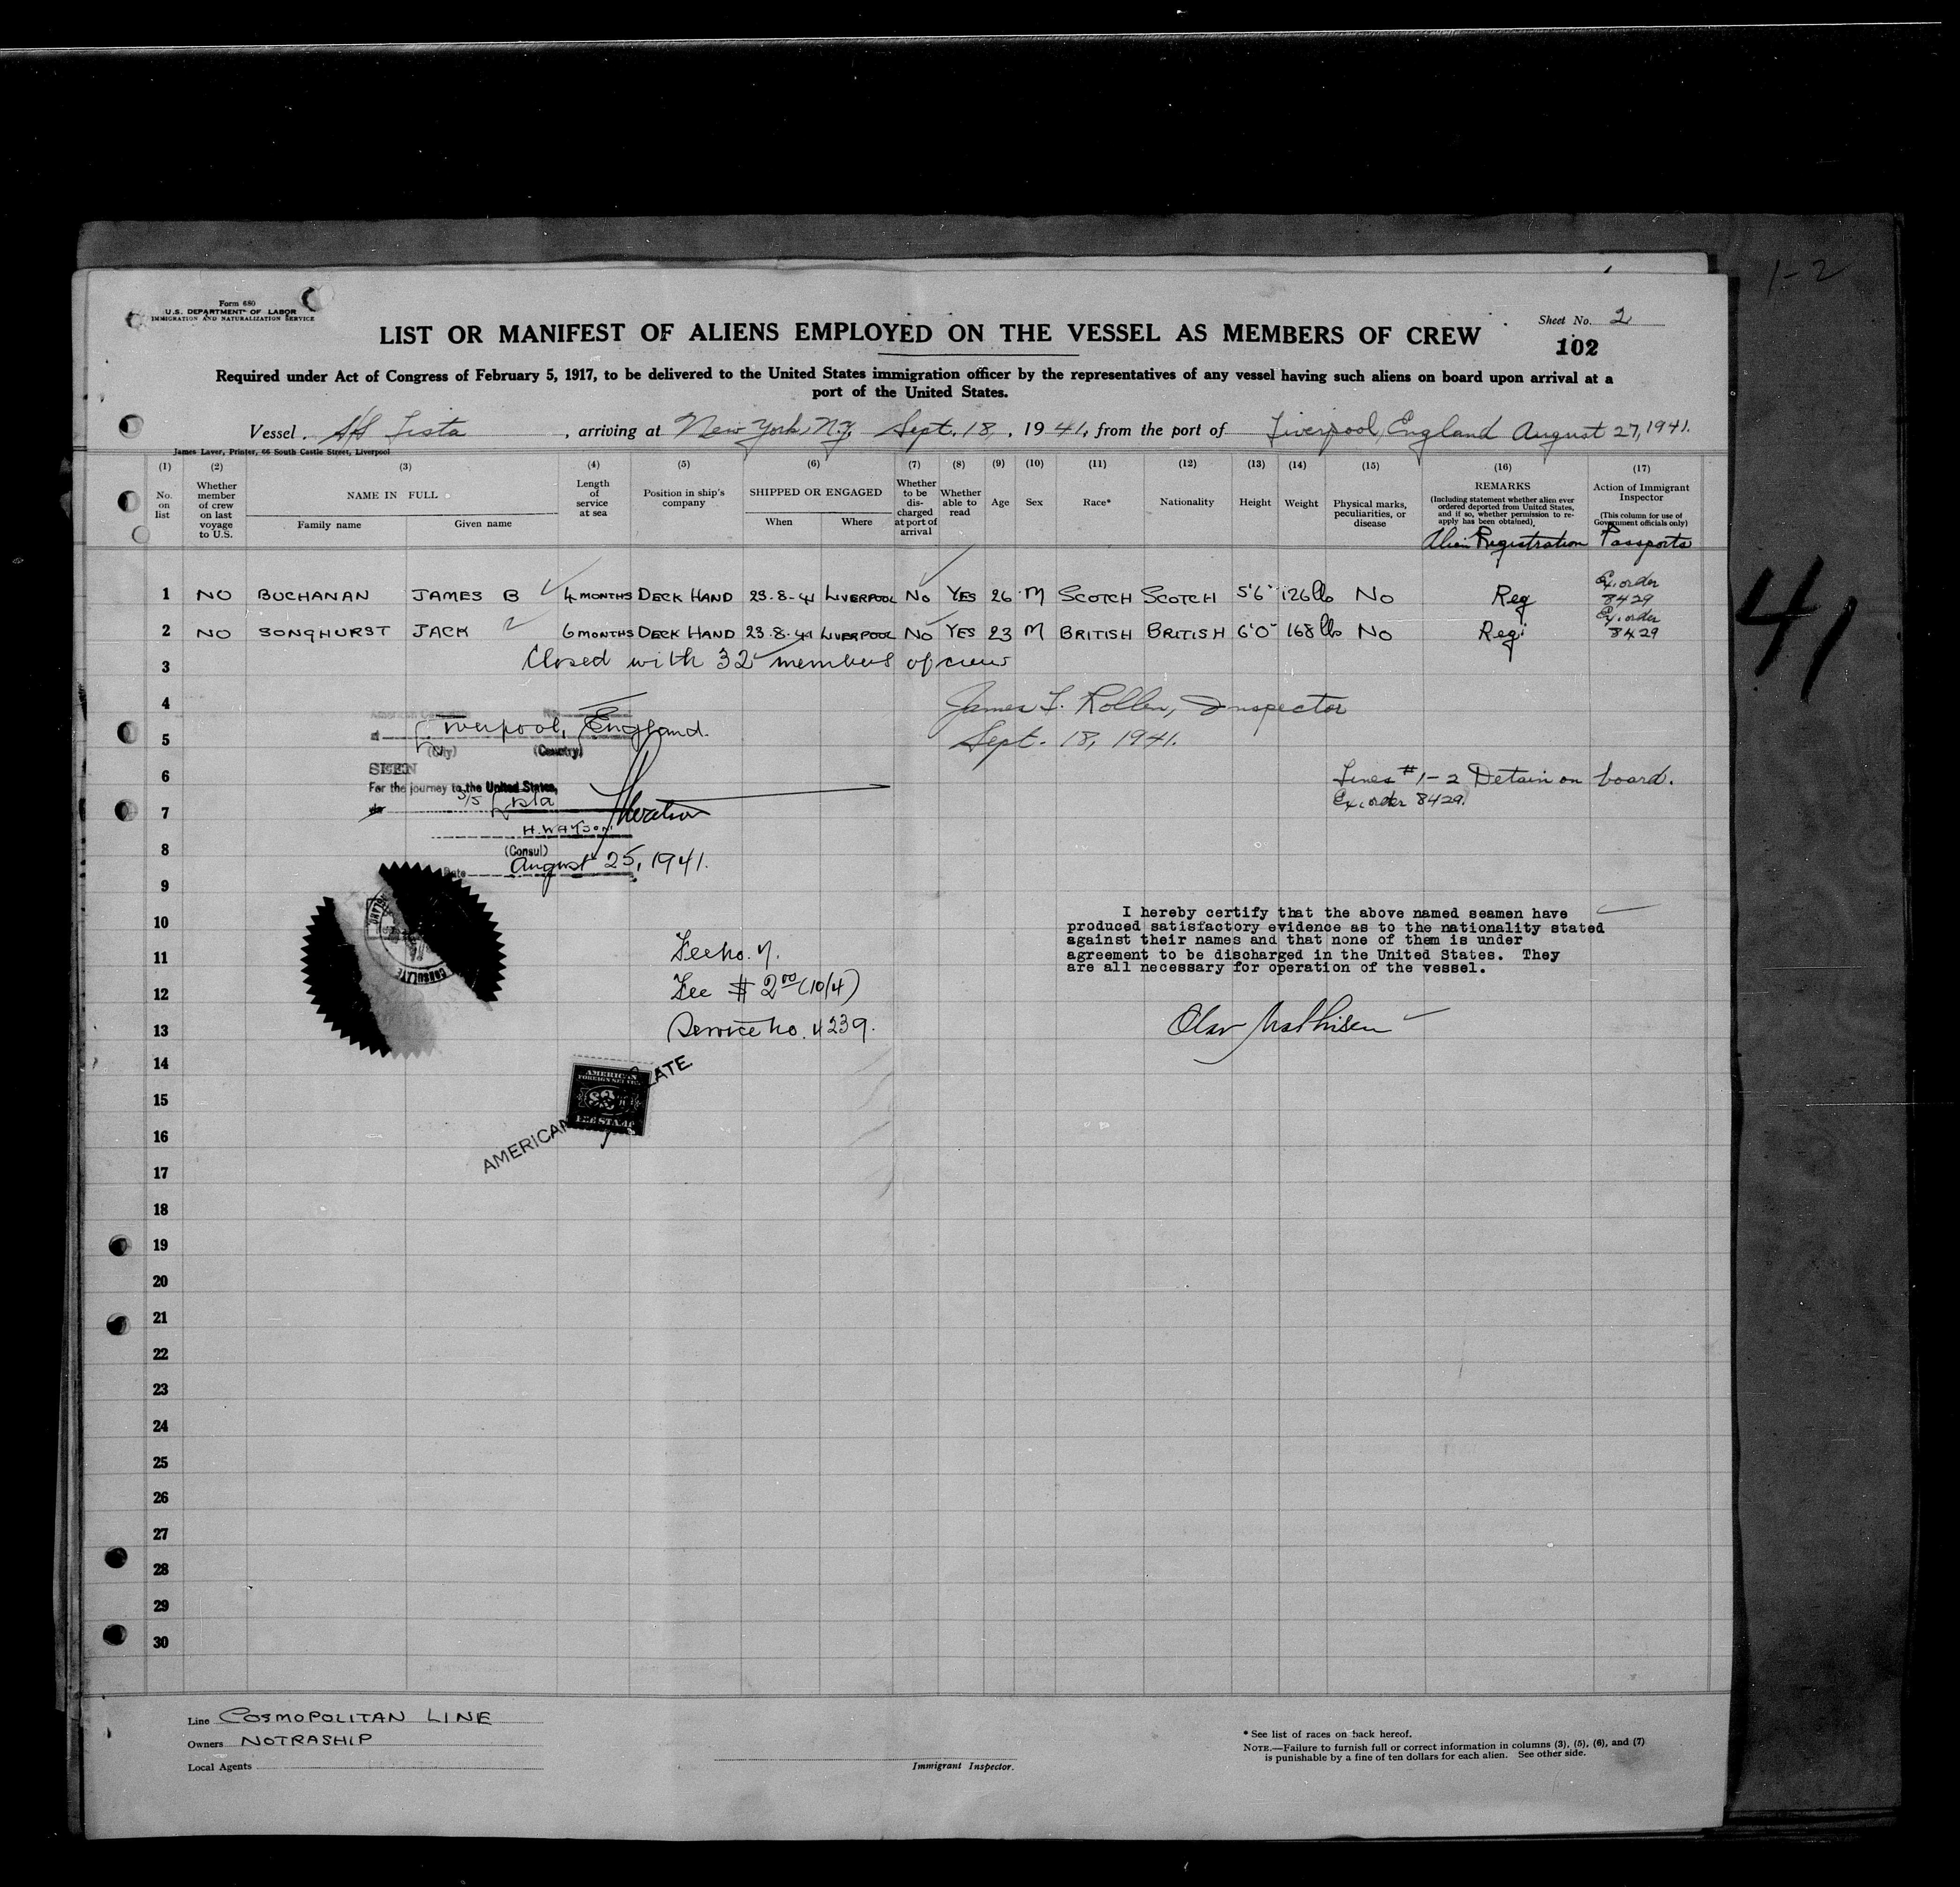 1-2
Form 680
U.S. DEPARTMENT OF LABOR
IMMIGRATION AND NATURALIZATION SERVICE
Sheet No. 2
LIST OR MANIFEST OF ALIENS EMPLOYED ON THE VESSEL AS MEMBERS OF CREW
102
Required under Act of Congress of February 5, 1917, to be delivered to the United States immigration officer by the representatives of any vessel having such aliens on board upon arrival at a
port of the United States.
Vessel S/S Lista, arriving at New York, N.Y. Sept. 18, 1941, from the port of Liverpool, England August 27, 1941.
James Laver, Printer, 66 South Castle Street, Liverpool
(1) (2) (3) (4) (5) (6) (7) (8) (9) (10) (11) (12) (13) (14) (15) (16) (17)
No. on list
Whether member of crew on last voyage to U.S.
NAME IN FULL
Family name Given name
Length of service at sea
Position in ship's company
SHIPPED OR ENGAGED
When Where
Whether to be discharged at port of arrival
Whether able to read
Age
Sex
Race*
Nationality
Height
Weight
Physical marks, peculiarities, or disease
REMARKS
(Including statement whether alien ever
ordered deported from United States,
and if so, whether permission to re-
apply has been obtained)
Alien Registration
Action of Immigrant
Inspector
(This column for use of
Government officials only)
Passports
1 NO BUCHANAN JAMES B 4 MONTHS DECK HAND 23-8-41 LIVERPOOL NO YES 26 M SCOTCH SCOTCH 5'6" 126 lb NO Reg Ex. order 8429
2 NO SONGHURST JACK 6 MONTHS DECK HAND 23-8-41 LIVERPOOL NO YES 23 M BRITISH BRITISH 6'0" 168 lb NO Reg Ex. order 8429
3 Closed with 32 members of crew
4 James T. Rollen, Inspector
5 Liverpool, England. Sept. 18, 1941.
at (City) (Country)
6 SEEN Lines #1-2 Detain on board.
For the journey to the United States,
7 S/S Lista Ex. order 8429.
H. WATSON
8 (Consul)
Date August 25, 1941.
9
10 I hereby certify that the above named seamen have
produced satisfactory evidence as to the nationality stated
against their names and that none of them is under
11 agreement to be discharged in the United States. They
are all necessary for operation of the vessel.
Fee no. 7.
12 Fee $2.00 (10/4)
13 Service no. 4239. Olav Mathisen
14
AMERICAN
FOREIGN SERVICE
15
FEE STAMP
16
17
18
19
20
21
22
23
24
25
26
27
28
29
30
41
Line COSMOPOLITAN LINE
Owners NOTRASHIP
Local Agents
Immigrant Inspector.
* See list of races on back hereof.
NOTE.—Failure to furnish full or correct information in columns (3), (5), (6), and (7)
is punishable by a fine of ten dollars for each alien. See other side.